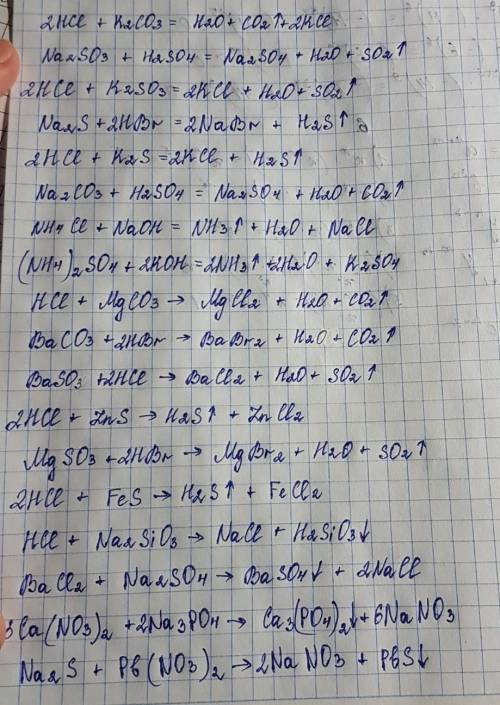 2HCl + K2CO3 = H2O + CO2↑ + 2KCl
Na2SO3 + H2SO4 = Na2SO4 + H2O + SO2↑
2HCl + K2SO3 = 2KCl + H2O + SO2↑
Na2S + 2HBr = 2NaBr + H2S↑
2HCl + K2S = 2KCl + H2S↑
Na2CO3 + H2SO4 = Na2SO4 + H2O + CO2↑
NH4Cl + NaOH = NH3↑ + H2O + NaCl
(NH4)2SO4 + 2KOH = 2NH3↑ + 2H2O + K2SO4
HCl + MgCO3 → MgCl2 + H2O + CO2↑
BaCO3 + 2HBr → BaBr2 + H2O + CO2↑
BaSO3 + 2HCl → BaCl2 + H2O + SO2↑
2HCl + ZnS → H2S↑ + ZnCl2
MgSO3 + 2HBr → MgBr2 + H2O + SO2↑
2HCl + FeS → H2S↑ + FeCl2
HCl + Na2SiO3 → NaCl + H2SiO3↓
BaCl2 + Na2SO4 → BaSO4↓ + 2NaCl
3Ca(NO3)2 + 2Na3PO4 → Ca3(PO4)2↓ + 6NaNO3
Na2S + Pb(NO3)2 → 2NaNO3 + PbS↓